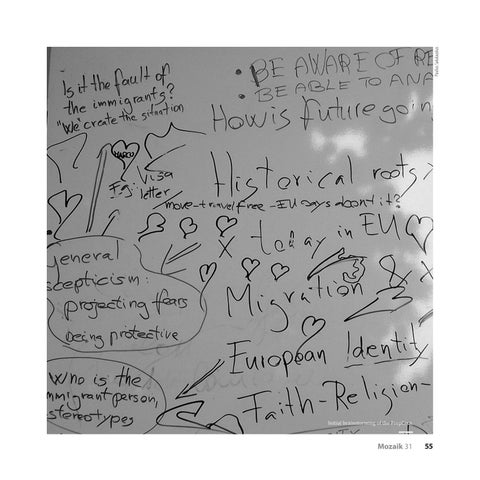 Is it the fault of
the immigrants?
"We" create the situation
BE AWARE OF RE
BE ABLE TO ANA
How is future goin
MARCO
Visa
letter
Historical roots
move-travel free - EU says about it?
today in EU
general
scepticism:
projecting fears
being protective
Migration &
European Identity
Who is the
mmigrant person,
stereotypes
Faith-Religion-
Mozaik 31 55